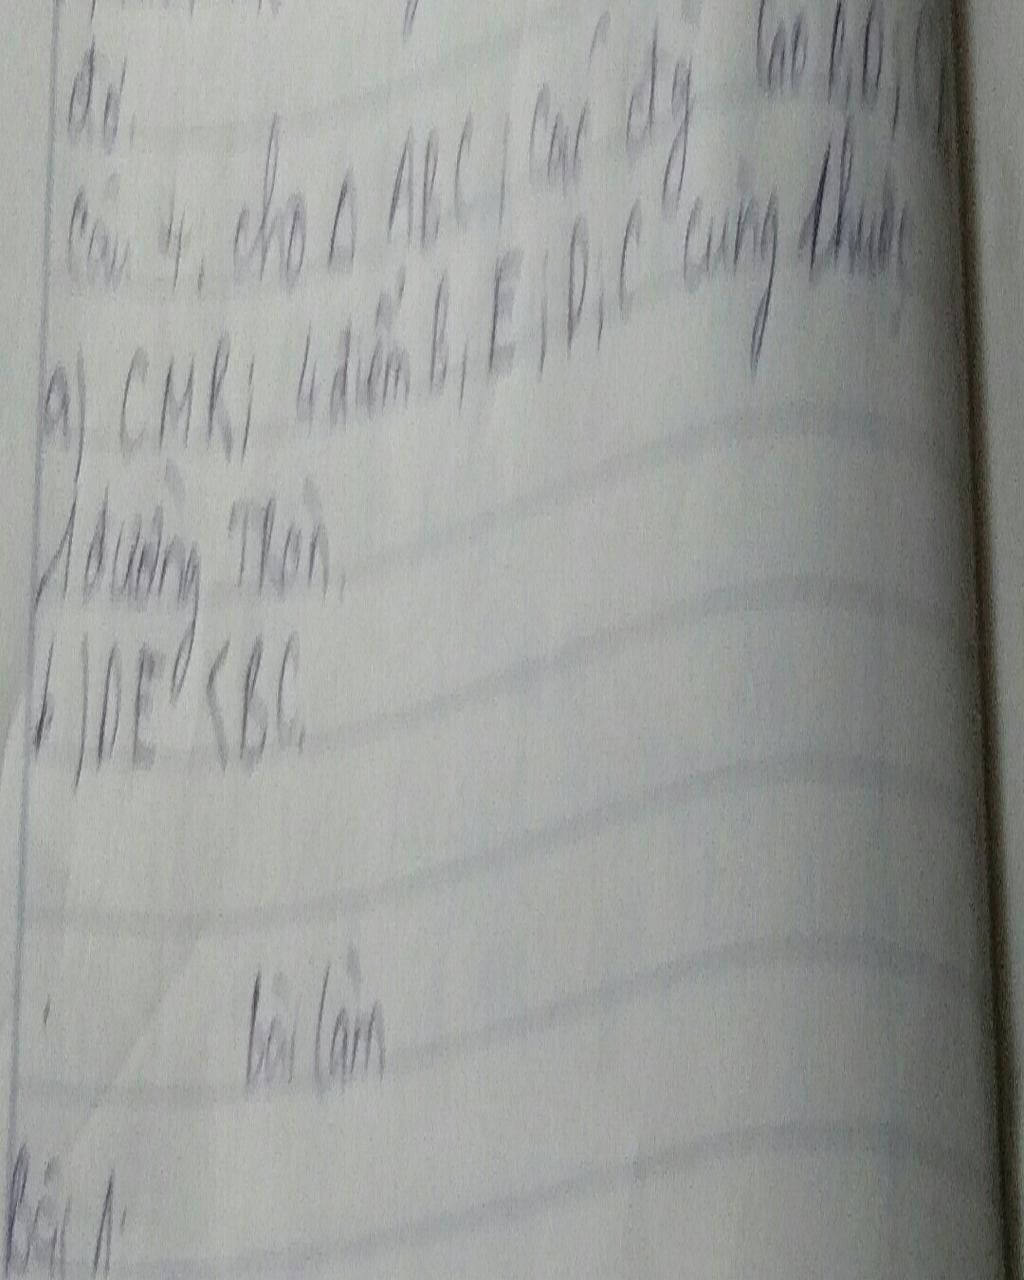 đó.
Câu 4. cho Δ ABC, các đg cao BD,
a) CMR; 4 điểm B, E, D, C cùng thuộc
1 đường Tròn.
b) DE < BC.
bài làm
Bài 1